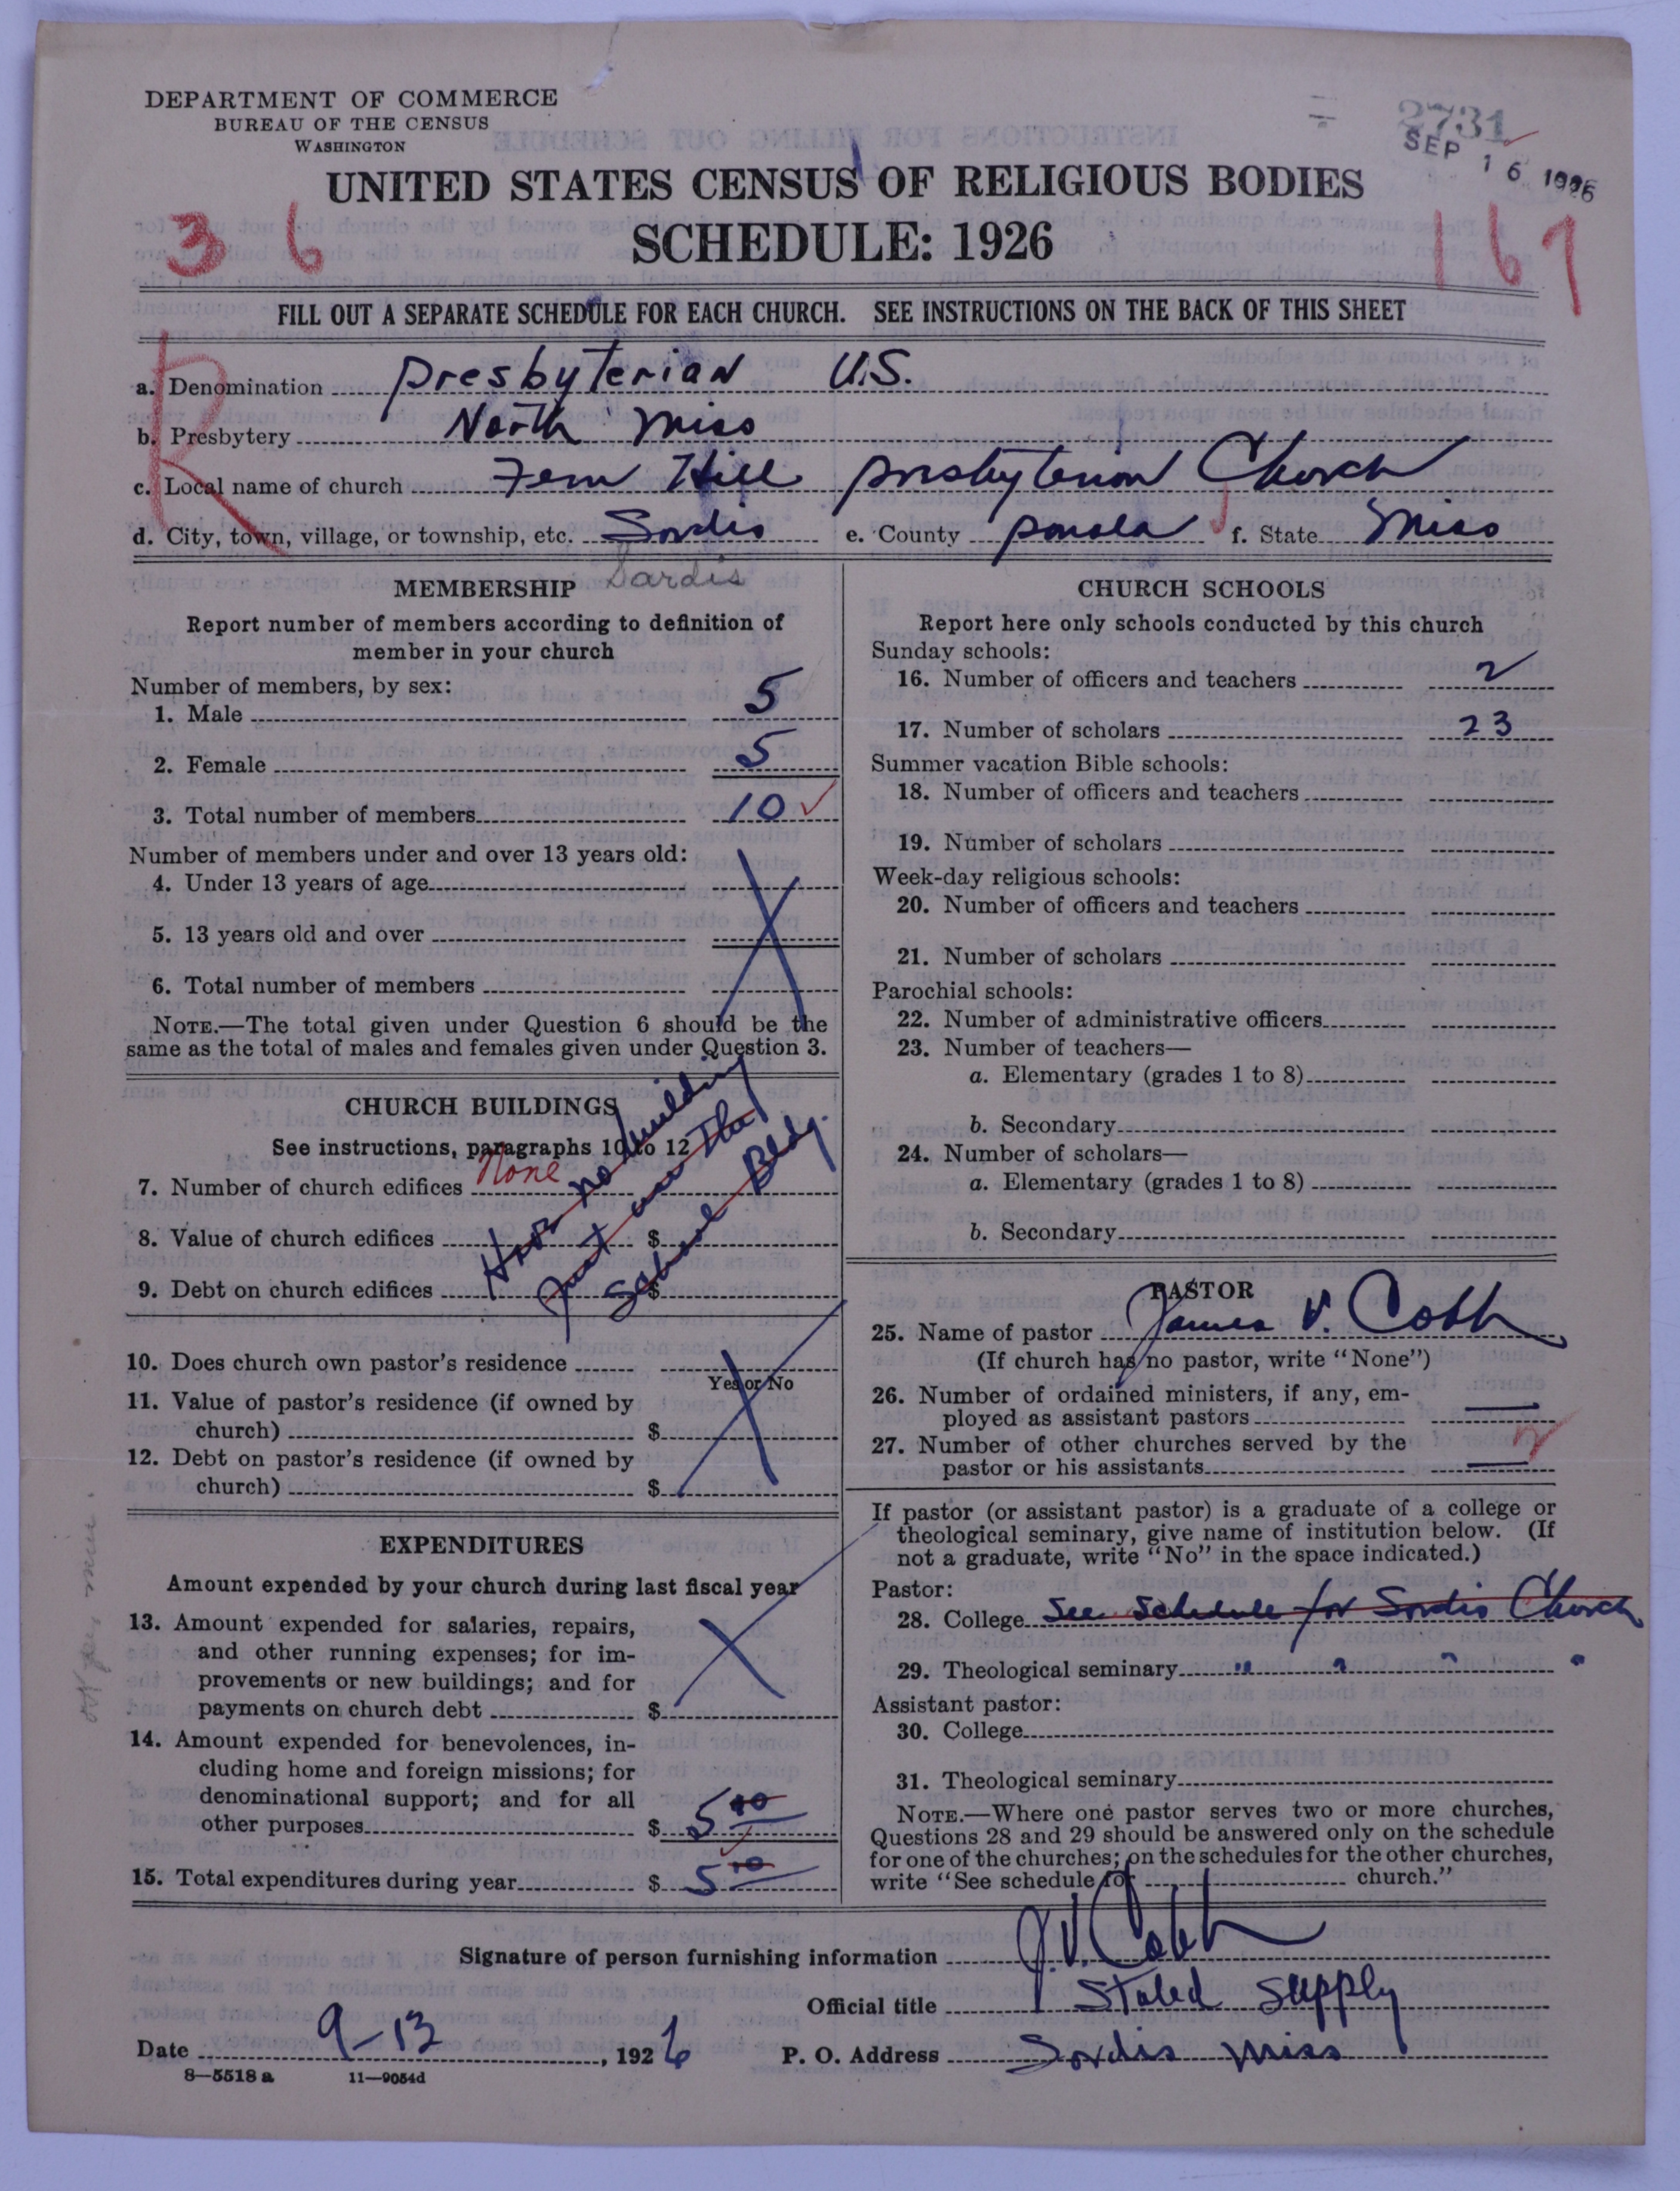 DEPARTMENT OF COMMERCE
BUREAU OF THE CENSUS
WASHINGTON
2731
SEP 16 1926
UNITED STATES CENSUS OF RELIGIOUS BODIES
SCHEDULE: 1926
36
167
FILL OUT A SEPARATE SCHEDULE FOR EACH CHURCH. SEE INSTRUCTIONS ON THE BACK OF THIS SHEET
R
a. Denomination Presbyterian U.S.
b. Presbytery North Miss
c. Local name of church Fern Hill Presbyterian Church
d. City, town, village, or township, etc. Sardis e. County Panola f. State Miss
Sardis
MEMBERSHIP
Report number of members according to definition of
member in your church
Number of members, by sex:
1. Male 5
2. Female 5
3. Total number of members 10
Number of members under and over 13 years old:
4. Under 13 years of age
5. 13 years old and over
6. Total number of members
NOTE.—The total given under Question 6 should be the
same as the total of males and females given under Question 3.
CHURCH BUILDINGS
See instructions, paragraphs 10 to 12
7. Number of church edifices None
8. Value of church edifices $
9. Debt on church edifices $
Have no building
Just use the
School Bldg.
10. Does church own pastor's residence
Yes or No
11. Value of pastor's residence (if owned by
church) $
12. Debt on pastor's residence (if owned by
church) $
EXPENDITURES
Amount expended by your church during last fiscal year
13. Amount expended for salaries, repairs,
and other running expenses; for im-
provements or new buildings; and for
payments on church debt $
14. Amount expended for benevolences, in-
cluding home and foreign missions; for
denominational support; and for all
other purposes $ 5
15. Total expenditures during year $ 5
CHURCH SCHOOLS
Report here only schools conducted by this church
Sunday schools:
16. Number of officers and teachers 2
17. Number of scholars 23
Summer vacation Bible schools:
18. Number of officers and teachers
19. Number of scholars
Week-day religious schools:
20. Number of officers and teachers
21. Number of scholars
Parochial schools:
22. Number of administrative officers
23. Number of teachers—
a. Elementary (grades 1 to 8)
b. Secondary
24. Number of scholars—
a. Elementary (grades 1 to 8)
b. Secondary
PASTOR
25. Name of pastor James V. Cobb
(If church has no pastor, write "None")
26. Number of ordained ministers, if any, em-
ployed as assistant pastors —
27. Number of other churches served by the
pastor or his assistants —
If pastor (or assistant pastor) is a graduate of a college or
theological seminary, give name of institution below. (If
not a graduate, write "No" in the space indicated.)
Pastor:
28. College See Schedule for Sardis Church
29. Theological seminary " " " "
Assistant pastor:
30. College
31. Theological seminary
NOTE.—Where one pastor serves two or more churches,
Questions 28 and 29 should be answered only on the schedule
for one of the churches; on the schedules for the other churches,
write "See schedule for church."
Signature of person furnishing information J. V. Cobb
Official title Stated Supply
Date 9-13, 1926 P. O. Address Sardis Miss
8—5518 a 11—9054d